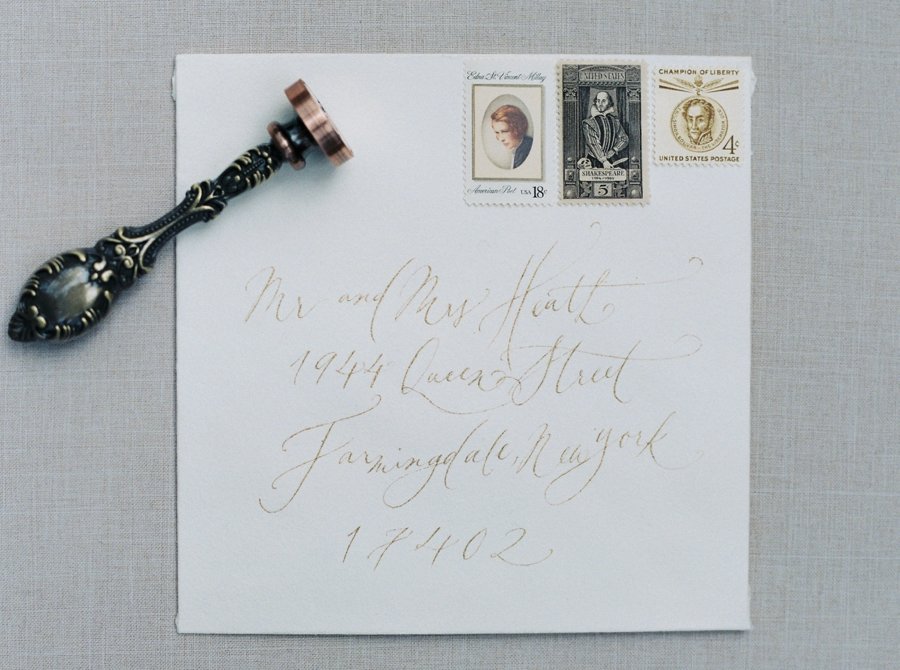 Edna St. Vincent Millay
American Poet USA 18c
UNITED STATES
SHAKESPEARE
1564 / 1964
5
CHAMPION OF LIBERTY
SIMON BOLIVAR · THE LIBERATOR
4¢
UNITED STATES POSTAGE
Mr and Mrs Hiatt
1944 Queens Street
Farmingdale, New York
17402